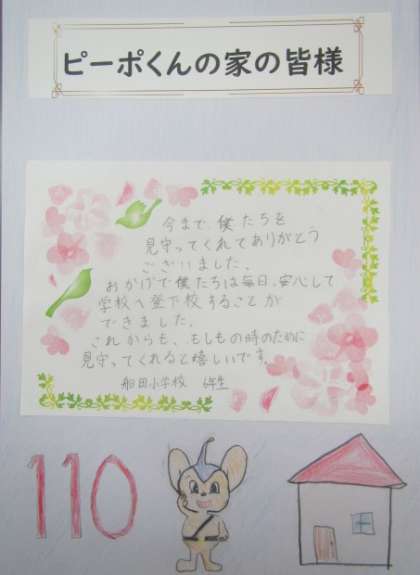 ピーポくんの家の皆様
今まで僕たちを
見守ってくれてありがとう
ございました。
おかげで僕たちは毎日、安心して
学校へ登下校することが
できました。
これからも、もしもの時のために
見守ってくれると嬉しいです。
船田小学校 6年生
110